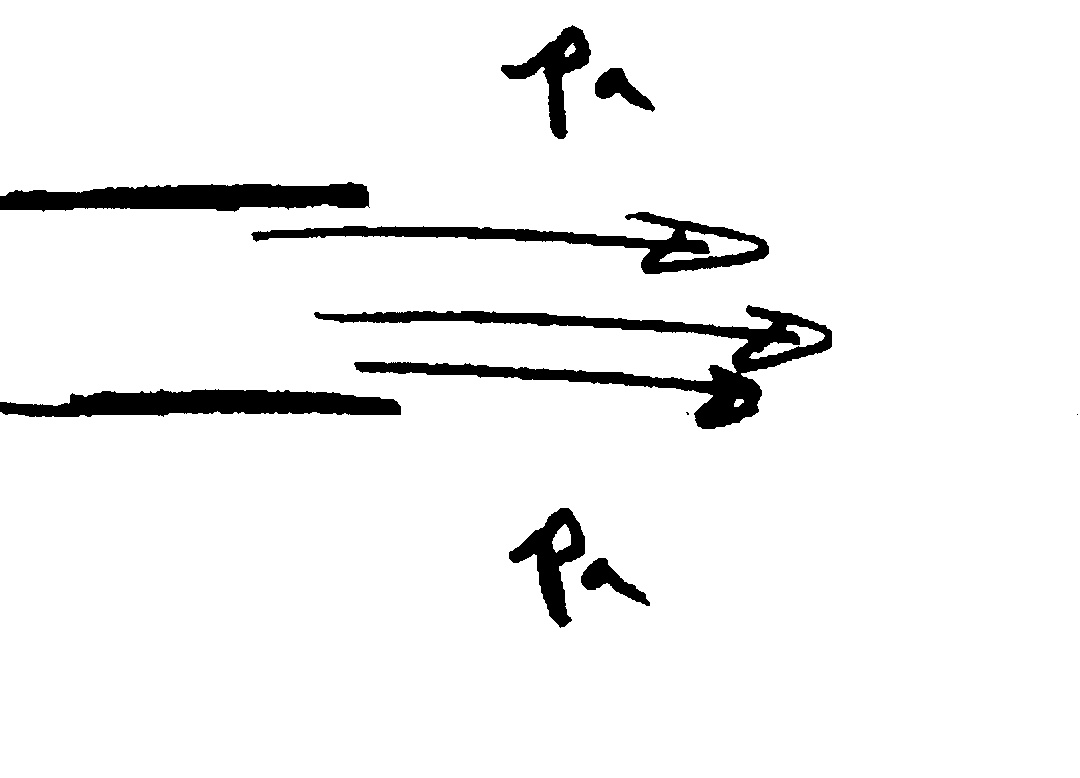 Pa
Pa